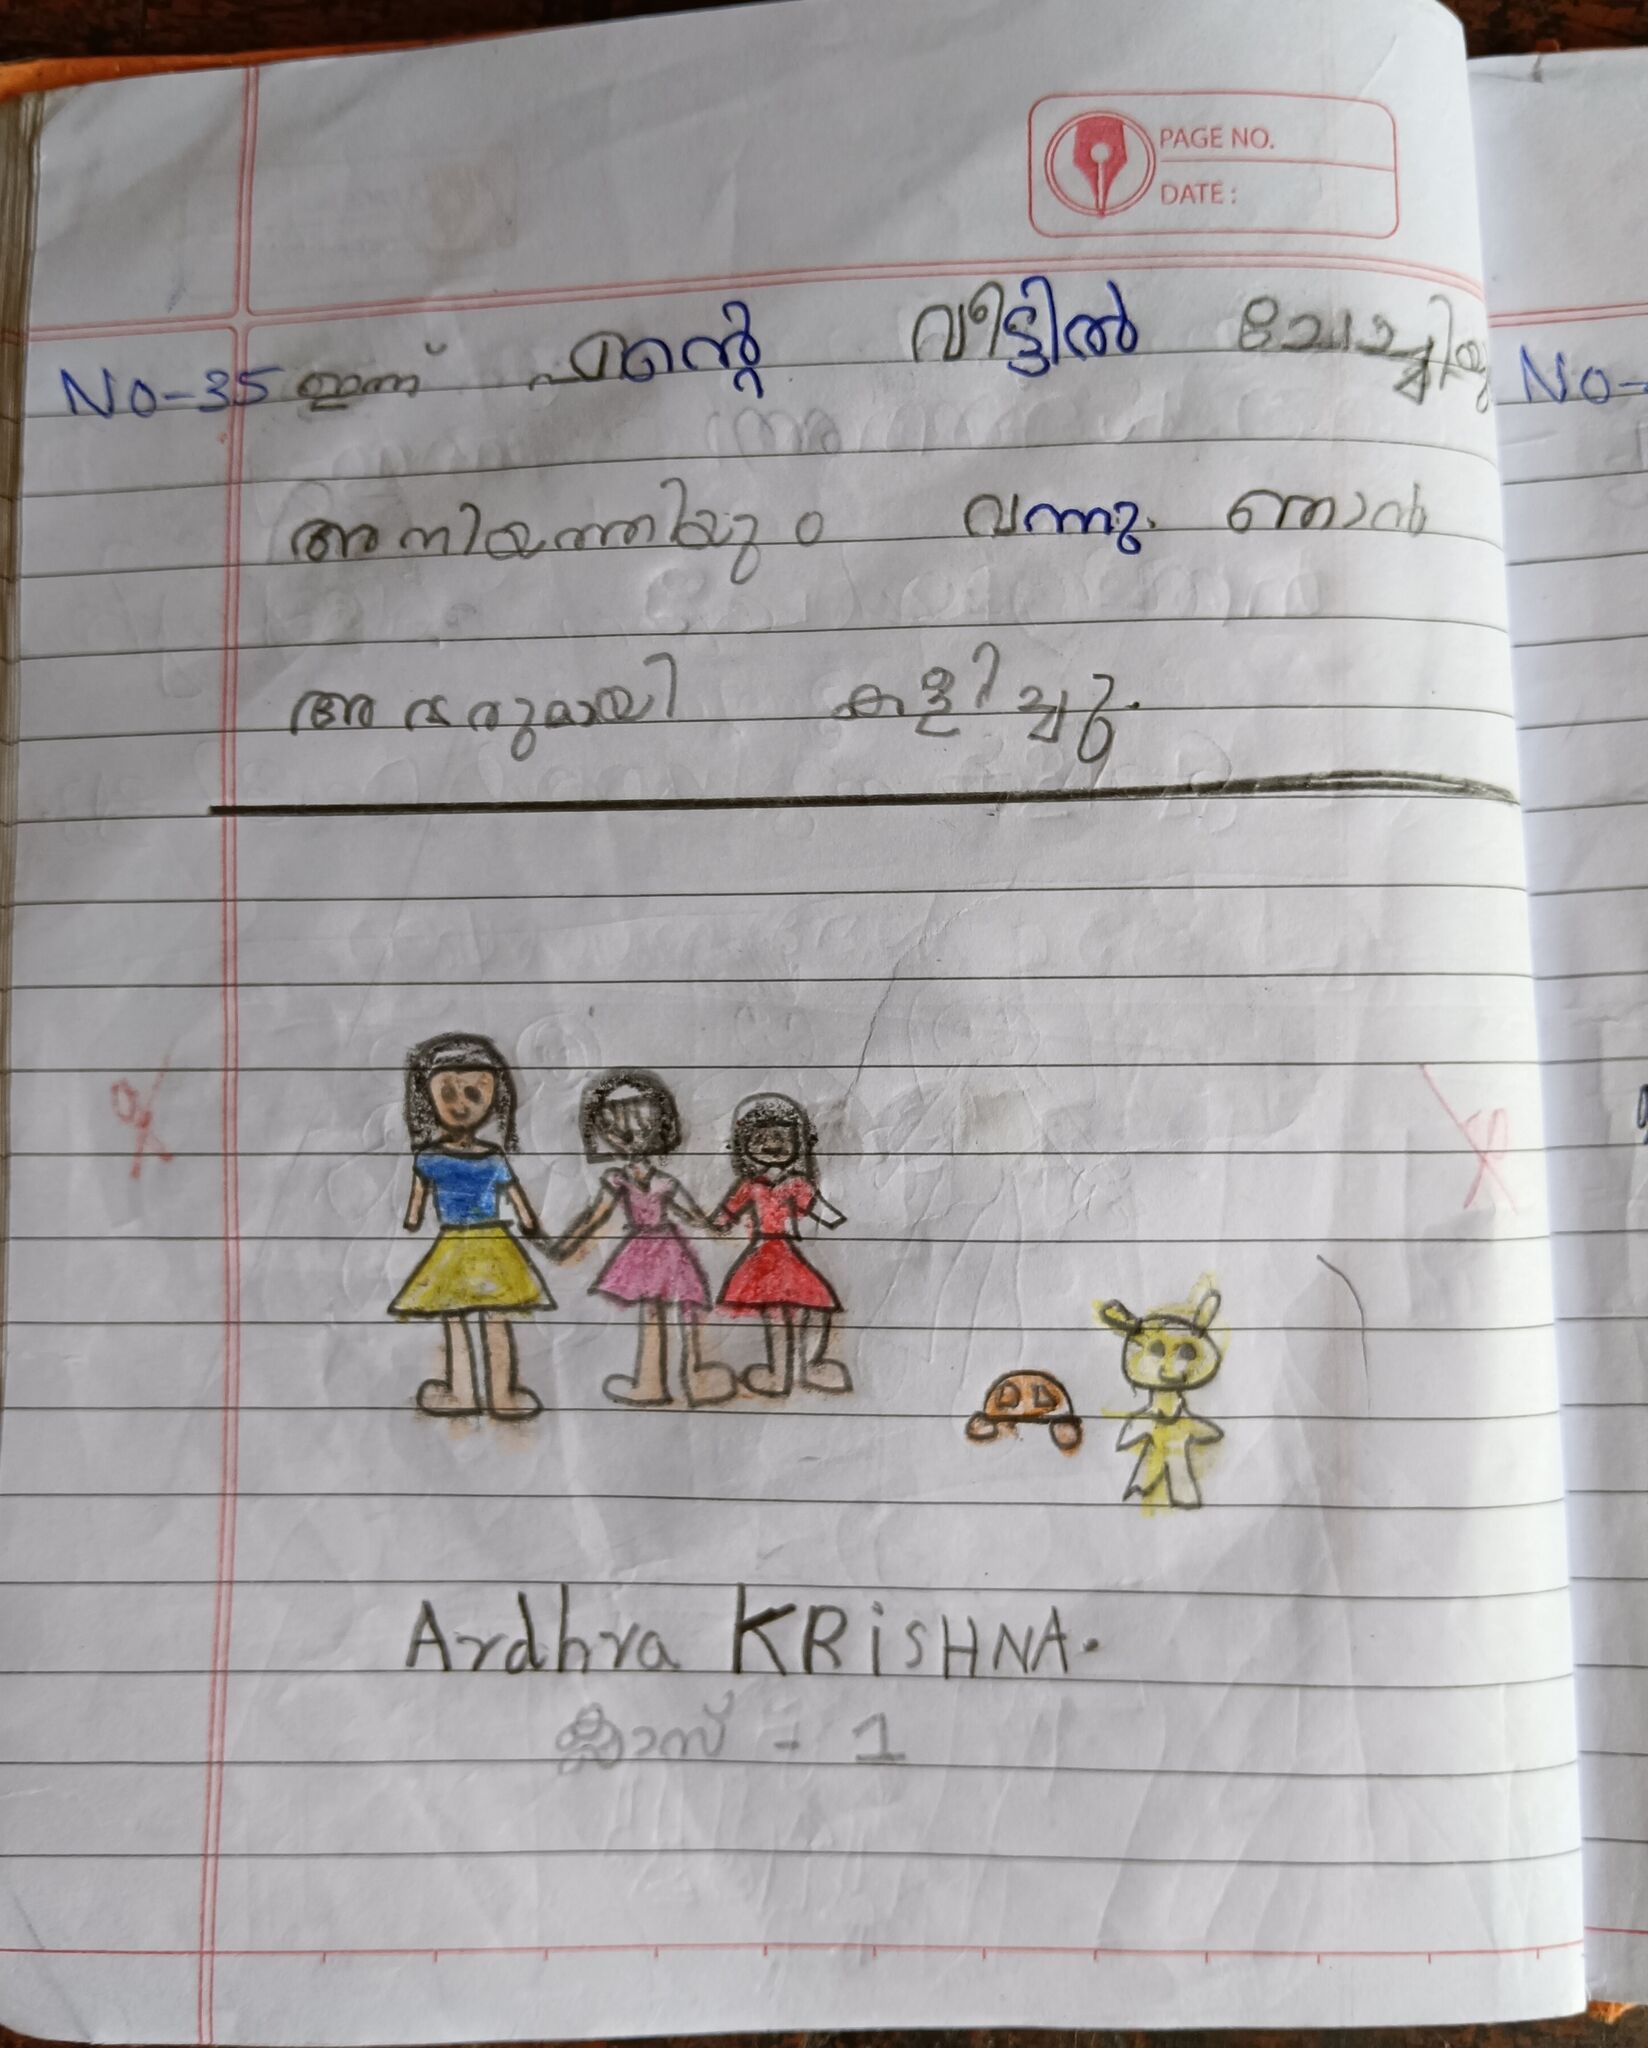 PAGE NO.
DATE :
No-35 ഇന്ന് എന്റെ വീട്ടിൽ ചേച്ചിയും No-
അനിയത്തിയും വന്നു. ഞാൻ
അവരുമായി കളിച്ചു.
Ardhra KRiSHNA.
ക്ലാസ് - 1